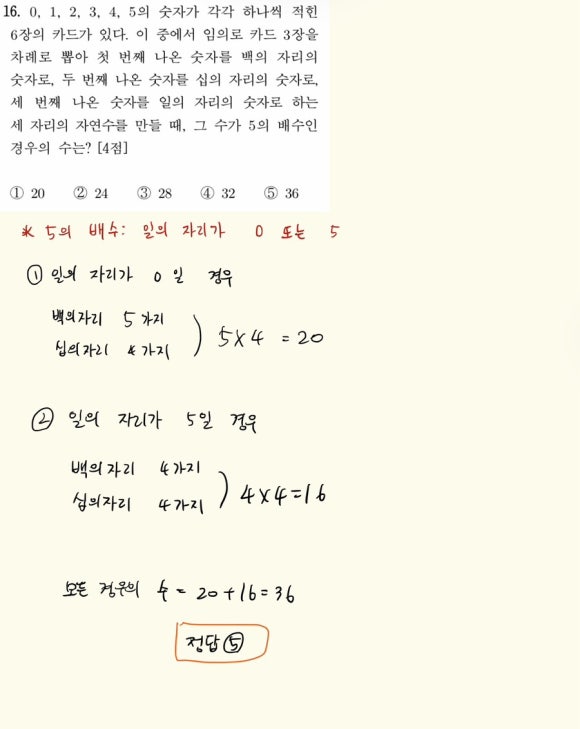 16. 0, 1, 2, 3, 4, 5의 숫자가 각각 하나씩 적힌
6장의 카드가 있다. 이 중에서 임의로 카드 3장을
차례로 뽑아 첫 번째 나온 숫자를 백의 자리의
숫자로, 두 번째 나온 숫자를 십의 자리의 숫자로,
세 번째 나온 숫자를 일의 자리의 숫자로 하는
세 자리의 자연수를 만들 때, 그 수가 5의 배수인
경우의 수는? [4점]
① 20 ② 24 ③ 28 ④ 32 ⑤ 36
* 5의 배수: 일의 자리가 0 또는 5
① 일의 자리가 0 일 경우
백의자리 5가지
십의자리 4가지
) 5×4 = 20
② 일의 자리가 5일 경우
백의자리 4가지
십의자리 4가지
) 4×4=16
모든 경우의 수 = 20+16=36
정답⑤